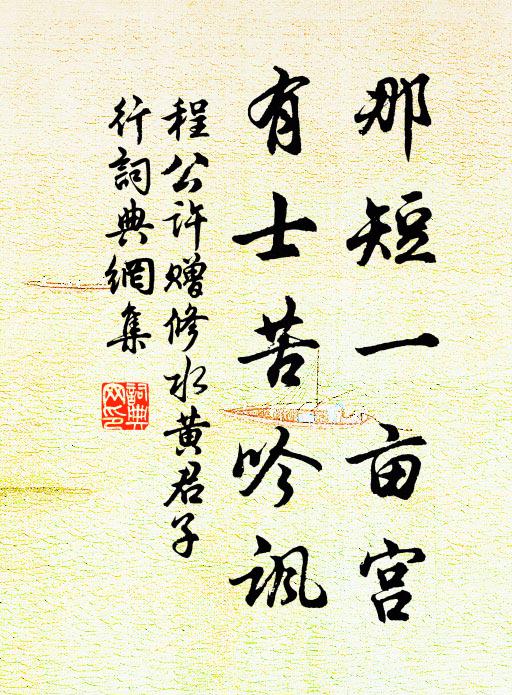 那短一亩宫
有士苦吟讽
程公许赠修水黄君子
行詞典網集
詞典
网印